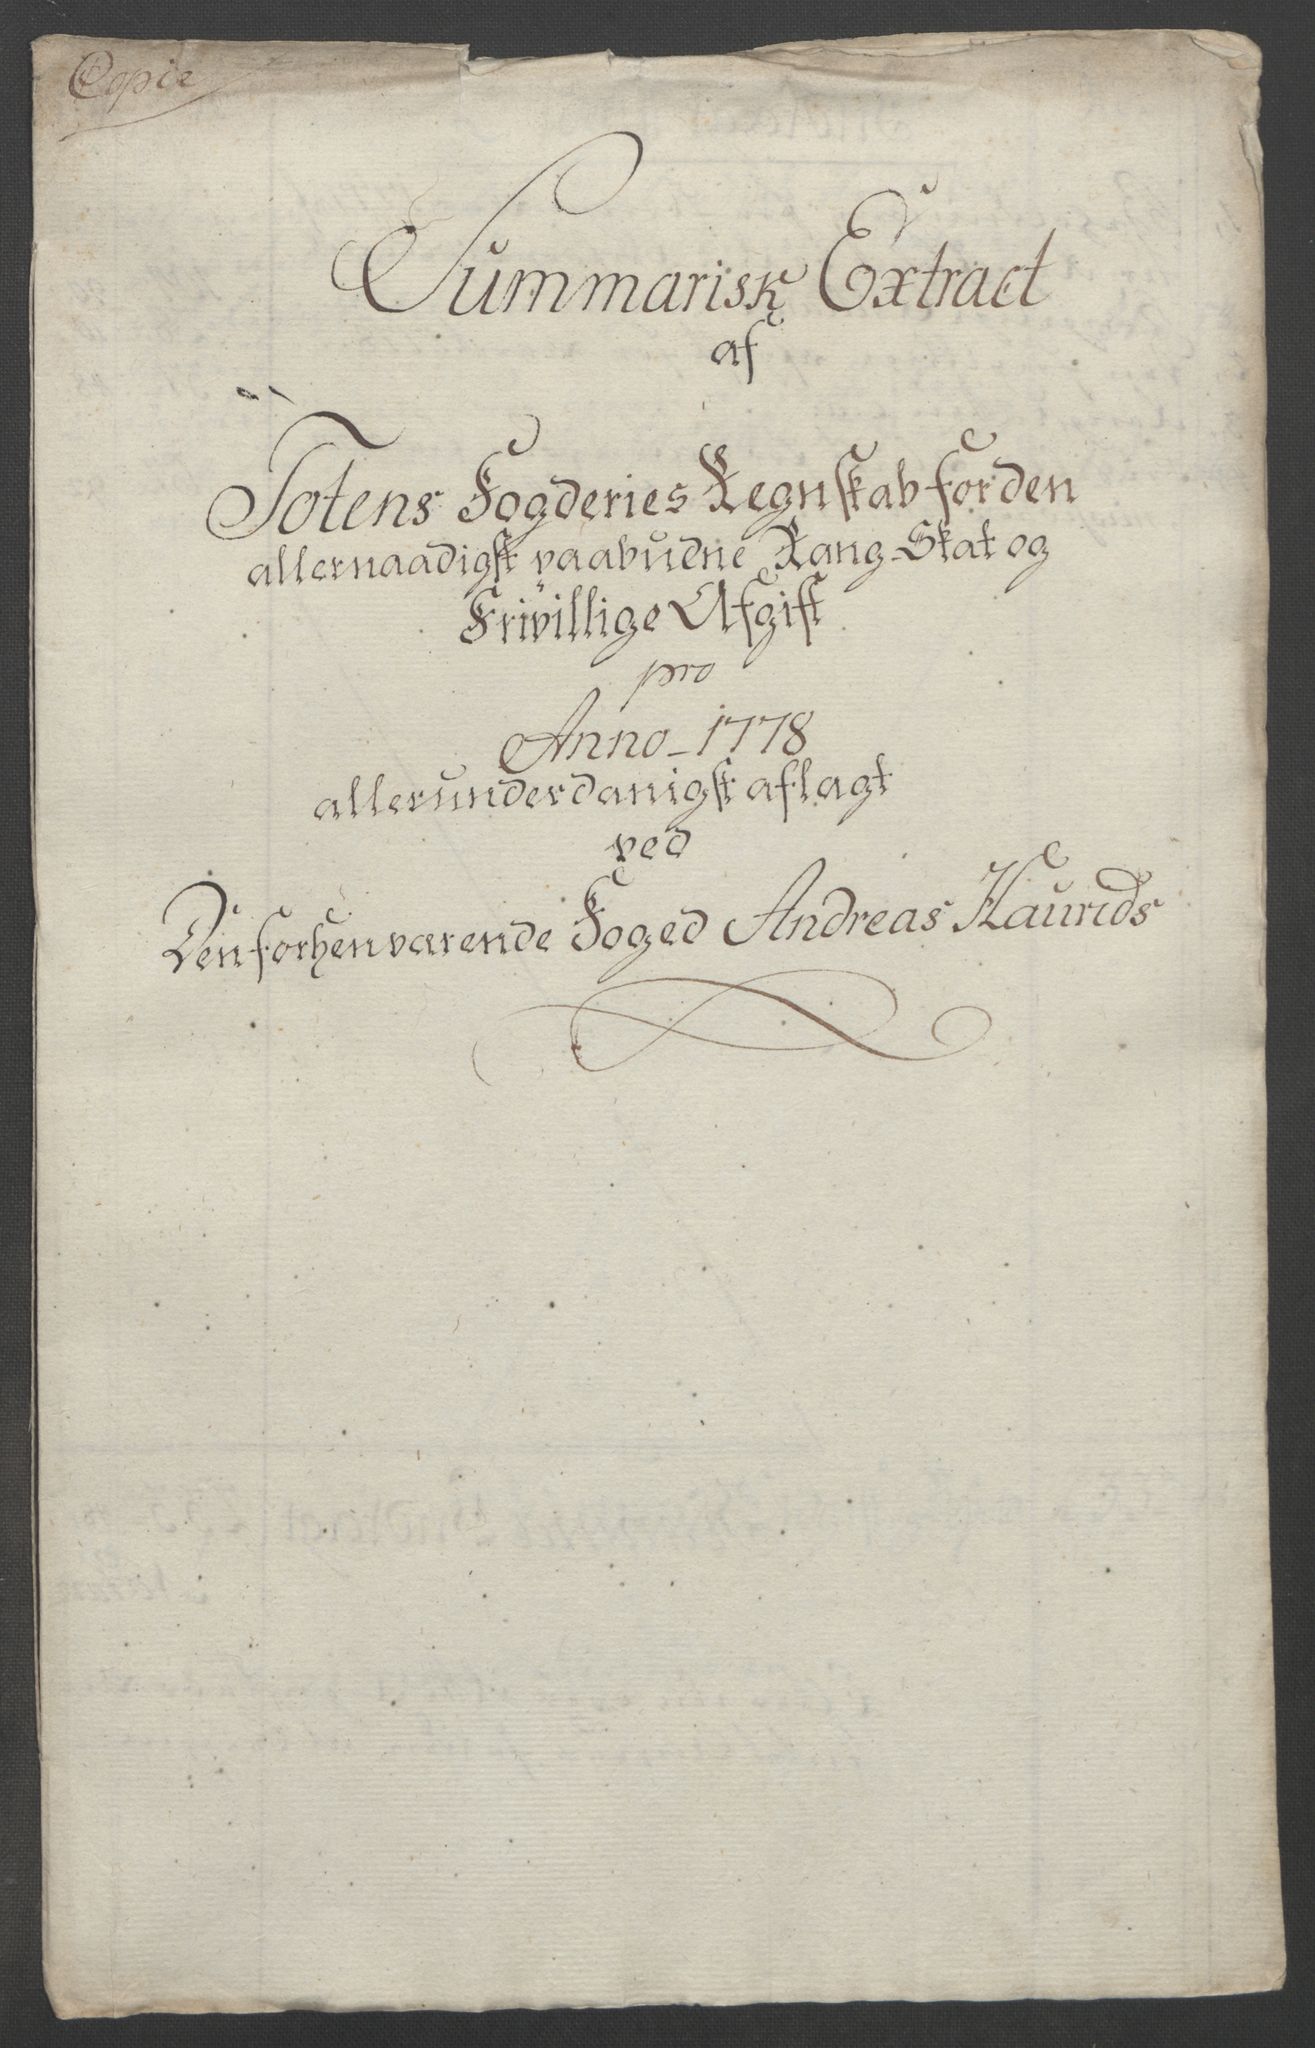 Copie
Summarisk Extract
af
Totens Fogderies Regnskab for den
allernaadigst paabudne Rang-Skat og
Frivillige Afgift
pro
Anno 1778
allerunderdanigst aflagt
ved
Den forhenværende Foged Andreas Haurids